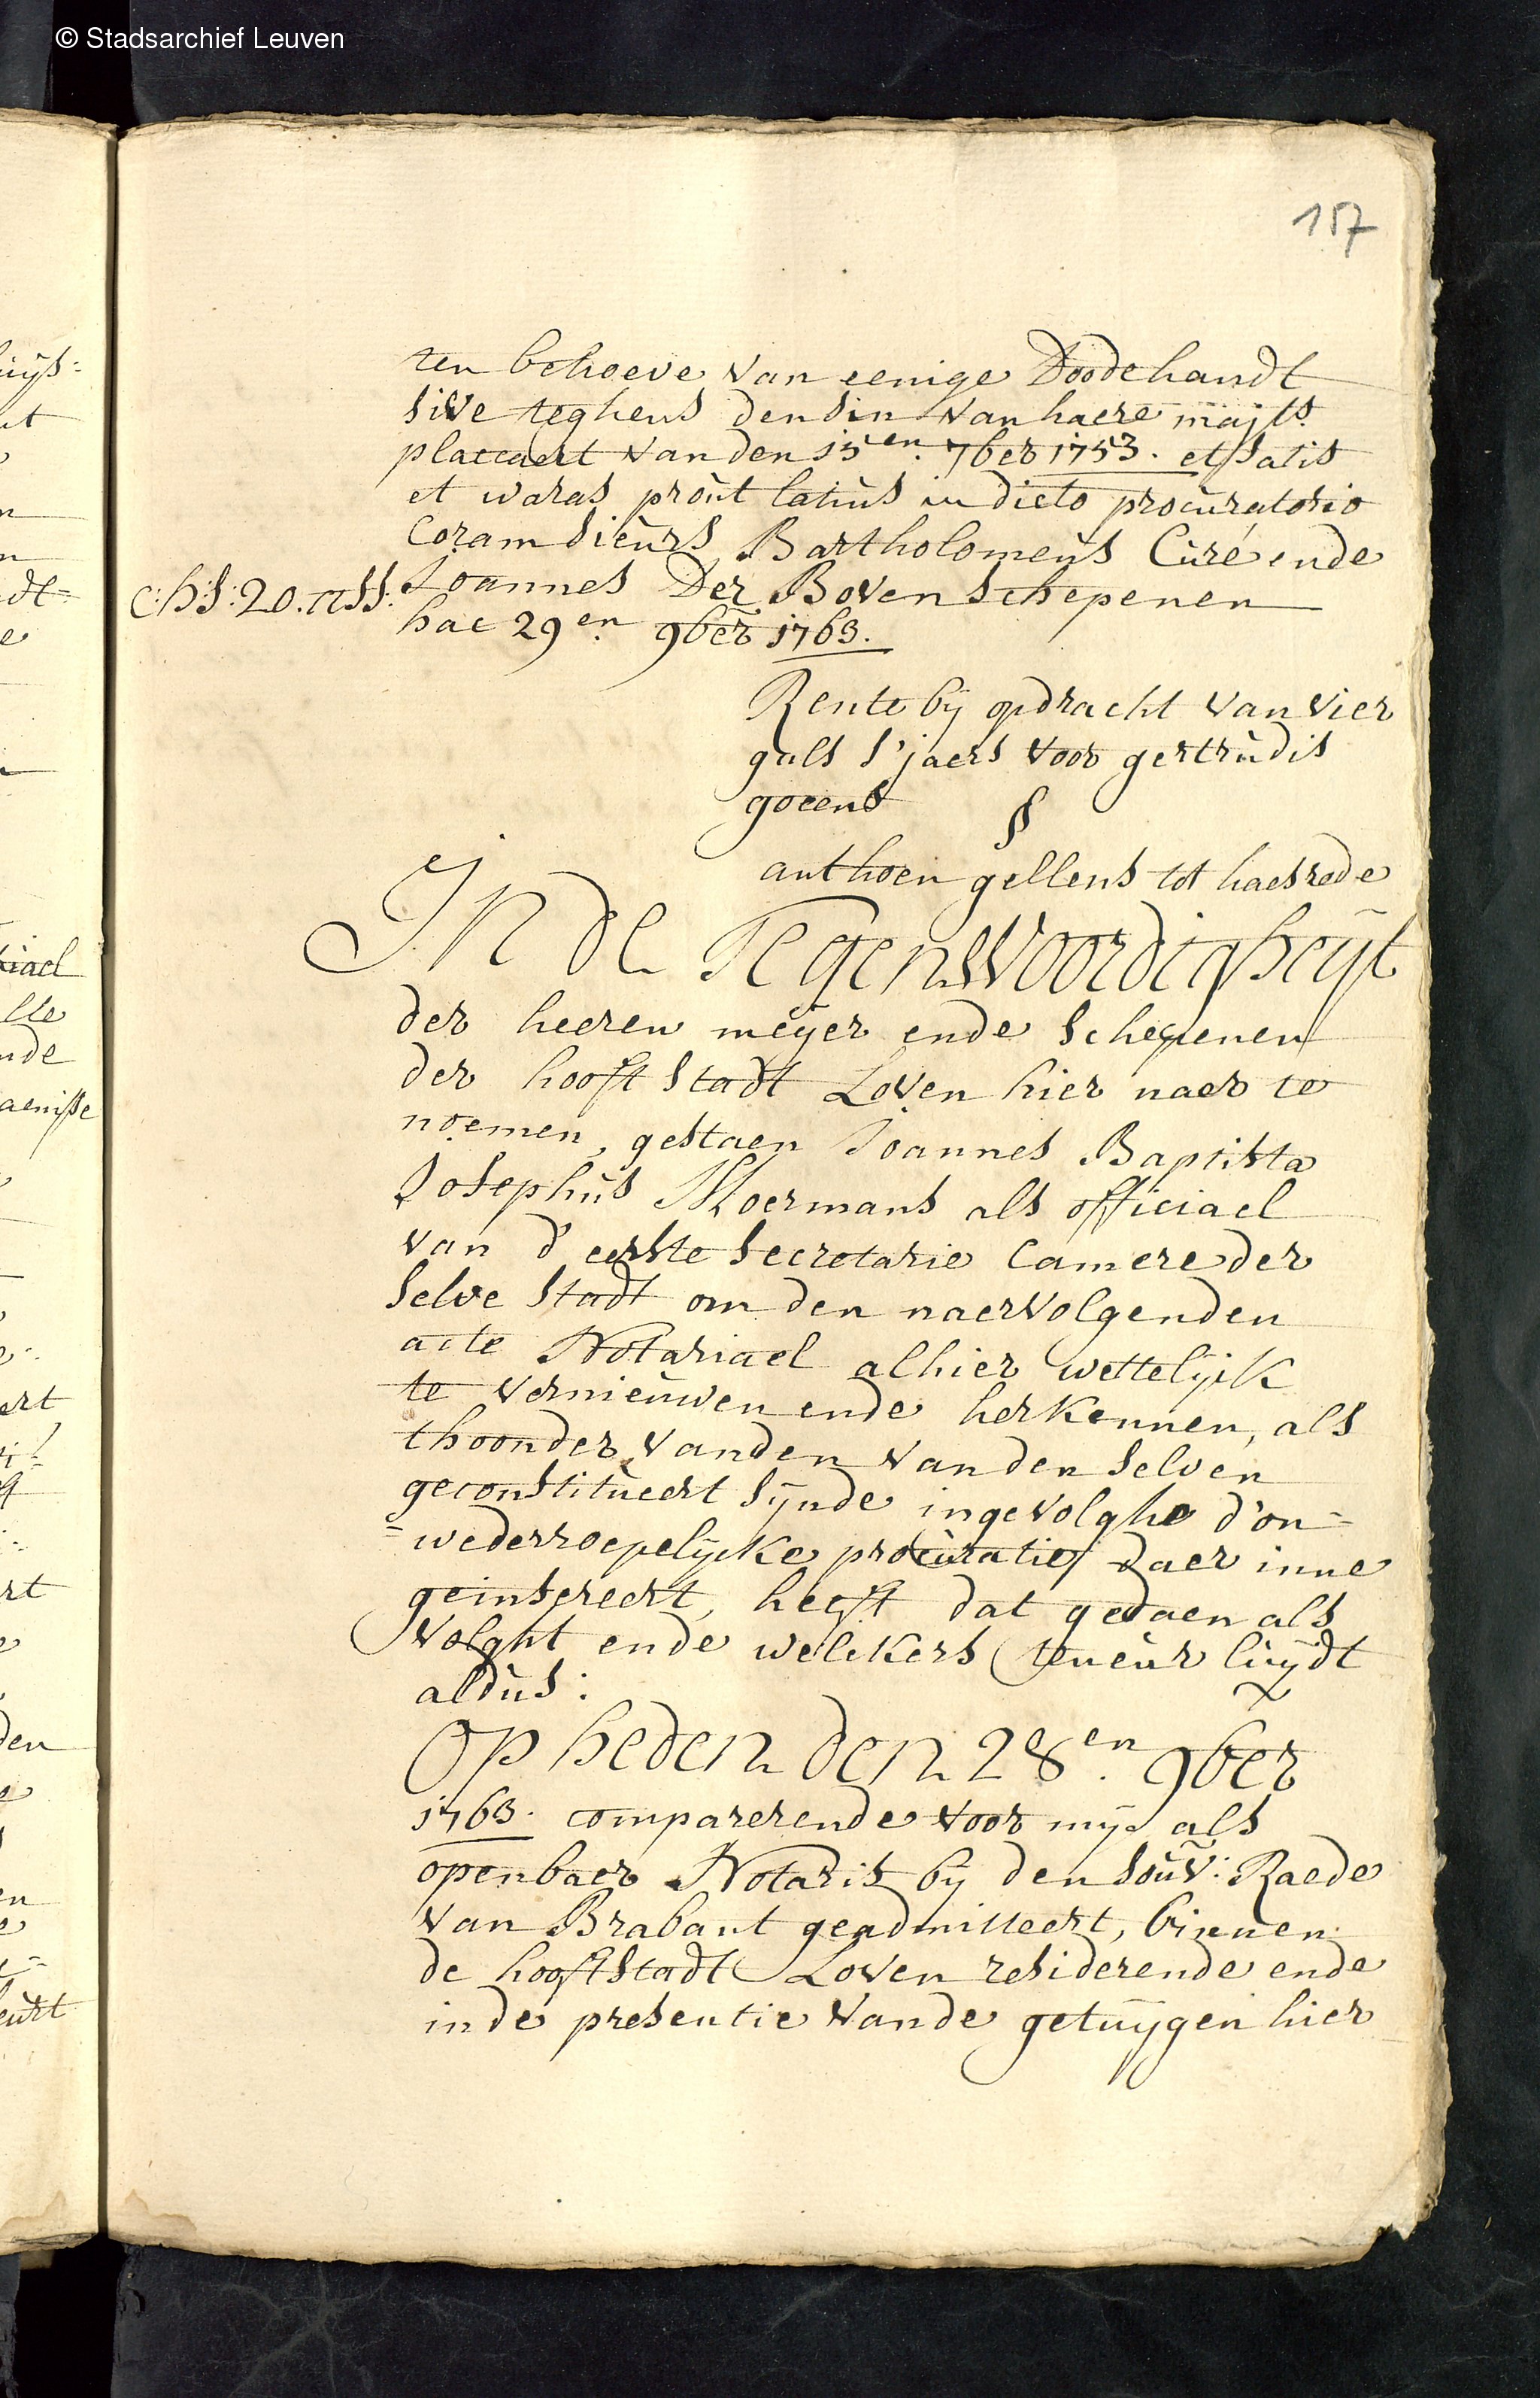 © Stadsarchief Leuven
157
ten behoeve van eenige Doodehandt
sive teghens den sin van haere majts
placcaert van den 15en 7ber 1753. et satis
et waras proùt latiùs in dicto procùratorio
Coram sieùrs Bartholomeùs Cùré ende
c:h:s: 20. ass: Joannes Der Boven schepenen
hac 29en 9ber 1763.
Rente bij opdracht van vier
guls s'jaers voor gertrùdis
goeens
§
anthoen gellens tot haesrode
In de Tegenwoordigheijt
der heeren meijer ende schepenen
der hooft stadt Loven hier naer te
noemen, gestaen Joannes Baptista
Josephùs Moermans als officiael
van d'eerste secretarie Camere der
selve stadt om den naervolgenden
acte Notariael alhier wettelijck
te vernieùwen ende herkennen, als
thoonder vanden van den selven
geconstitùeert sijnde ingevolghe d'on=
=wederroepelijcke procùratie daer inne
geinsereert, heeft dat gedaen als
volght ende welckers teneùr lùijdt
aldùs:
Op heden den 28en 9ber
1763. comparerende voor mij als
openbaer Notaris bij den soùv: Raede
van Brabant geadmitteert, binnen
de hooftstadt Loven residerende ende
in de presentie vande getùijgen hier